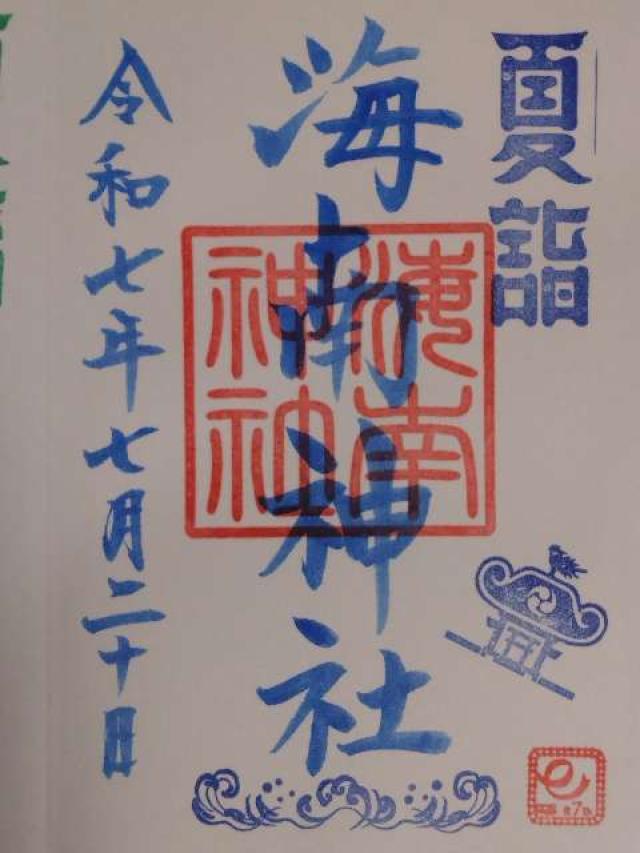 夏詣
海南神社
海南
神社
令和七年七月二十日